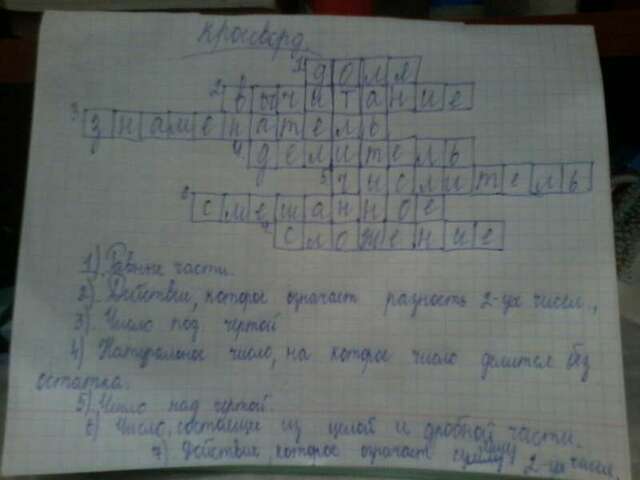 Кросворд.
1. доля
2. вычитание
3. знаменатель
4. делитель
5. числитель
6. смешанное
7. сложение
1) Равные части.
2) Действие, которое означает разность 2-ух чисел.
3) Число под чертой
4) Натуральное число, на которое число делится без
остатка.
5) Число над чертой.
6) Число, состоящее из целой и дробной части.
7) Действие, которое означает сумму 2-ух чисел.